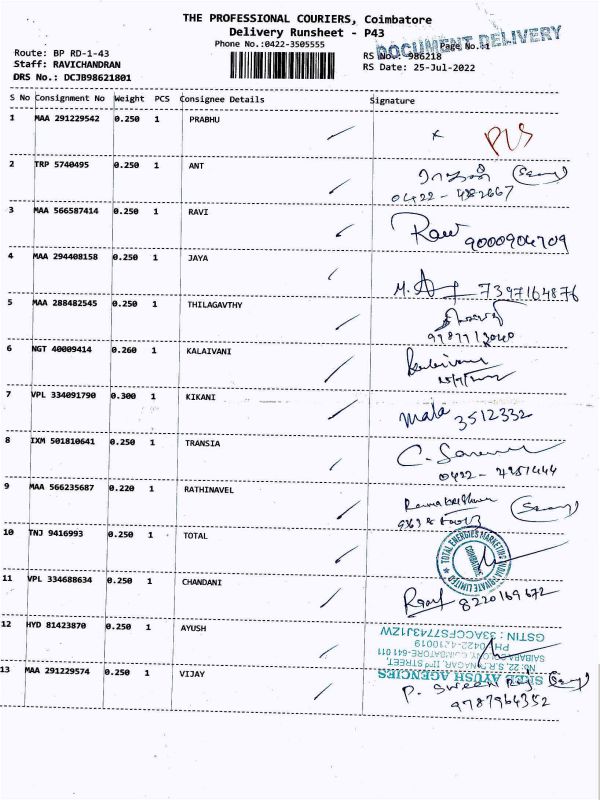 THE PROFESSIONAL COURIERS, Coimbatore
Delivery Runsheet - P43
Phone No.:0422-3505555
DOCUMENT DELIVERY
Page No.:1
Route: BP RD-1-43
Staff: RAVICHANDRAN
DRS No.: DCJB98621801
RS No.: 986218
RS Date: 25-Jul-2022
S No Consignment No Weight PCS Consignee Details Signature
1 MAA 291229542 0.250 1 PRABHU
2 TRP 5740495 0.250 1 ANT
0422-4382667
3 MAA 566587414 0.250 1 RAVI
Ravi 9000904709
4 MAA 294408158 0.250 1 JAYA
7397164876
5 MAA 288482545 0.250 1 THILAGAVTHY
6 NGT 40009414 0.260 1 KALAIVANI
7 VPL 334091790 0.300 1 KIKANI
Mala 3512332
8 IXM 501810641 0.250 1 TRANSIA
0422-
9 MAA 566235687 0.220 1 RATHINAVEL
10 TNJ 9416993 0.250 1 TOTAL
TOTAL ENERGIES MARKETING INDIA PRIVATE LIMITED
COIMBATORE
11 VPL 334688634 0.250 1 CHANDANI
8220169672
12 HYD 81423870 0.250 1 AYUSH
SHREE AYUSH AGENCIES
NO: 22, S.R.P. NAGAR, IInd STREET,
SAIBABA COLONY, COIMBATORE-641 011
PH: 0422-4210019
GSTIN : 33ACCFS7743J1ZW
13 MAA 291229574 0.250 1 VIJAY
9787964352